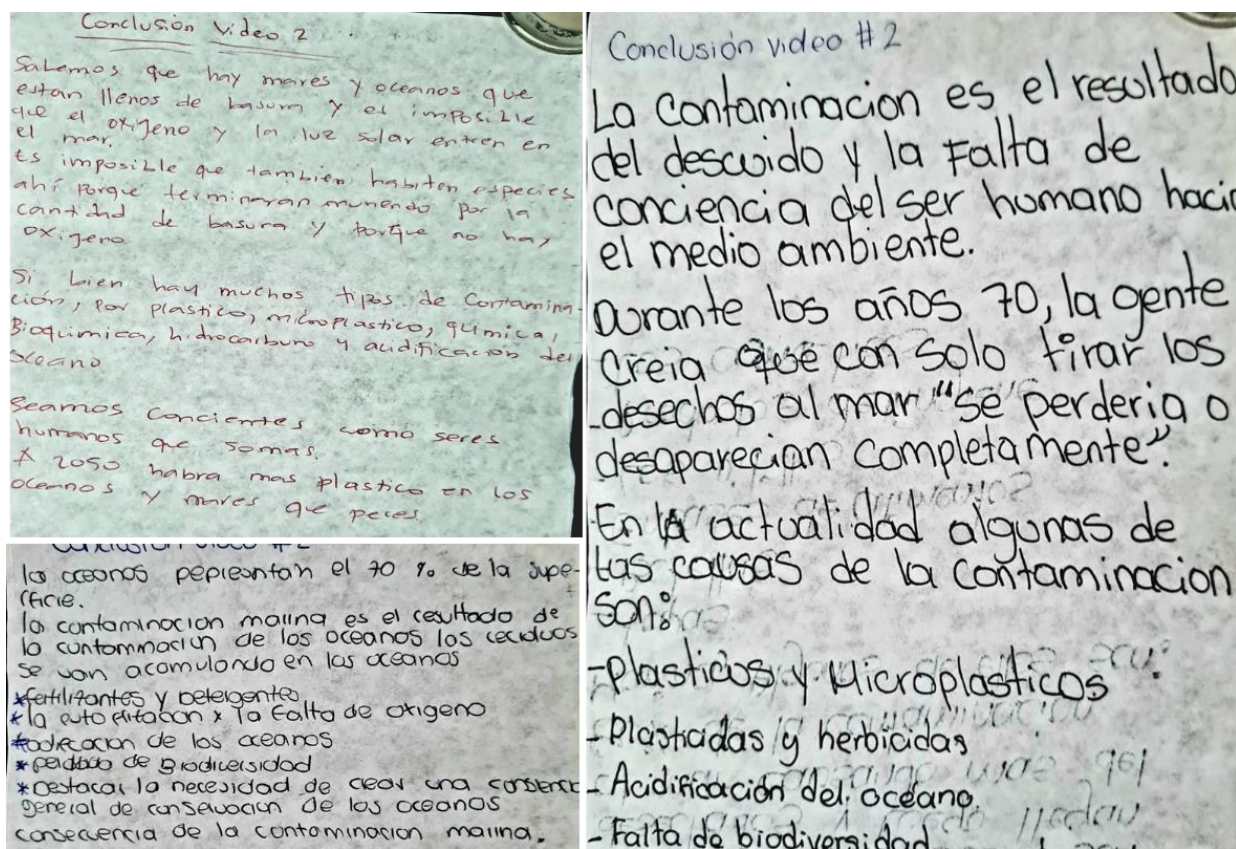 Conclusión Video 2
Sabemos que hay mares y oceanos que
estan llenos de basura y es imposible
que el oxigeno y la luz solar entren en
el mar.
Es imposible que también habiten especies
ahí porque terminaran muriendo por la
cantidad de basura y porque no hay
oxigeno
Si bien hay muchos tipos de Contamina-
ción, por plastico, microplastico, química,
Bioquimica, hidrocarburo y acidificación del
oceano
Seamos concientes como seres
humanos que somos.
A 2050 habra mas plastico en los
oceanos y mares que peces.
los oceanos pepresntan el 70 % de la supe-
rficie.
la contaminacion marina es el resultado de
la contaminación de los oceanos los reciduos
se van acomulando en los oceanos
*fertilizantes y Detergentes
*la x la falta de oxigeno
de los oceanos
*perdida de Biodiversidad
*Destacar la necesidad de crear una
general de conservacion de los oceanos
consecuencia de la contaminacion marina.
Conclusión video #2
La Contaminacion es el resultado
del descuido y la Falta de
conciencia del ser humano hacia
el medio ambiente.
Durante los años 70, la gente
Creia que con solo tirar los
desechos al mar "se perderia o
desaparecian completamente".
En la actualidad algunas de
las causas de la contaminacion
son:
-Plasticos y Microplasticos
-Plasticadas y herbicidas
-Acidificación del océano.
-Falta de biodiversidad